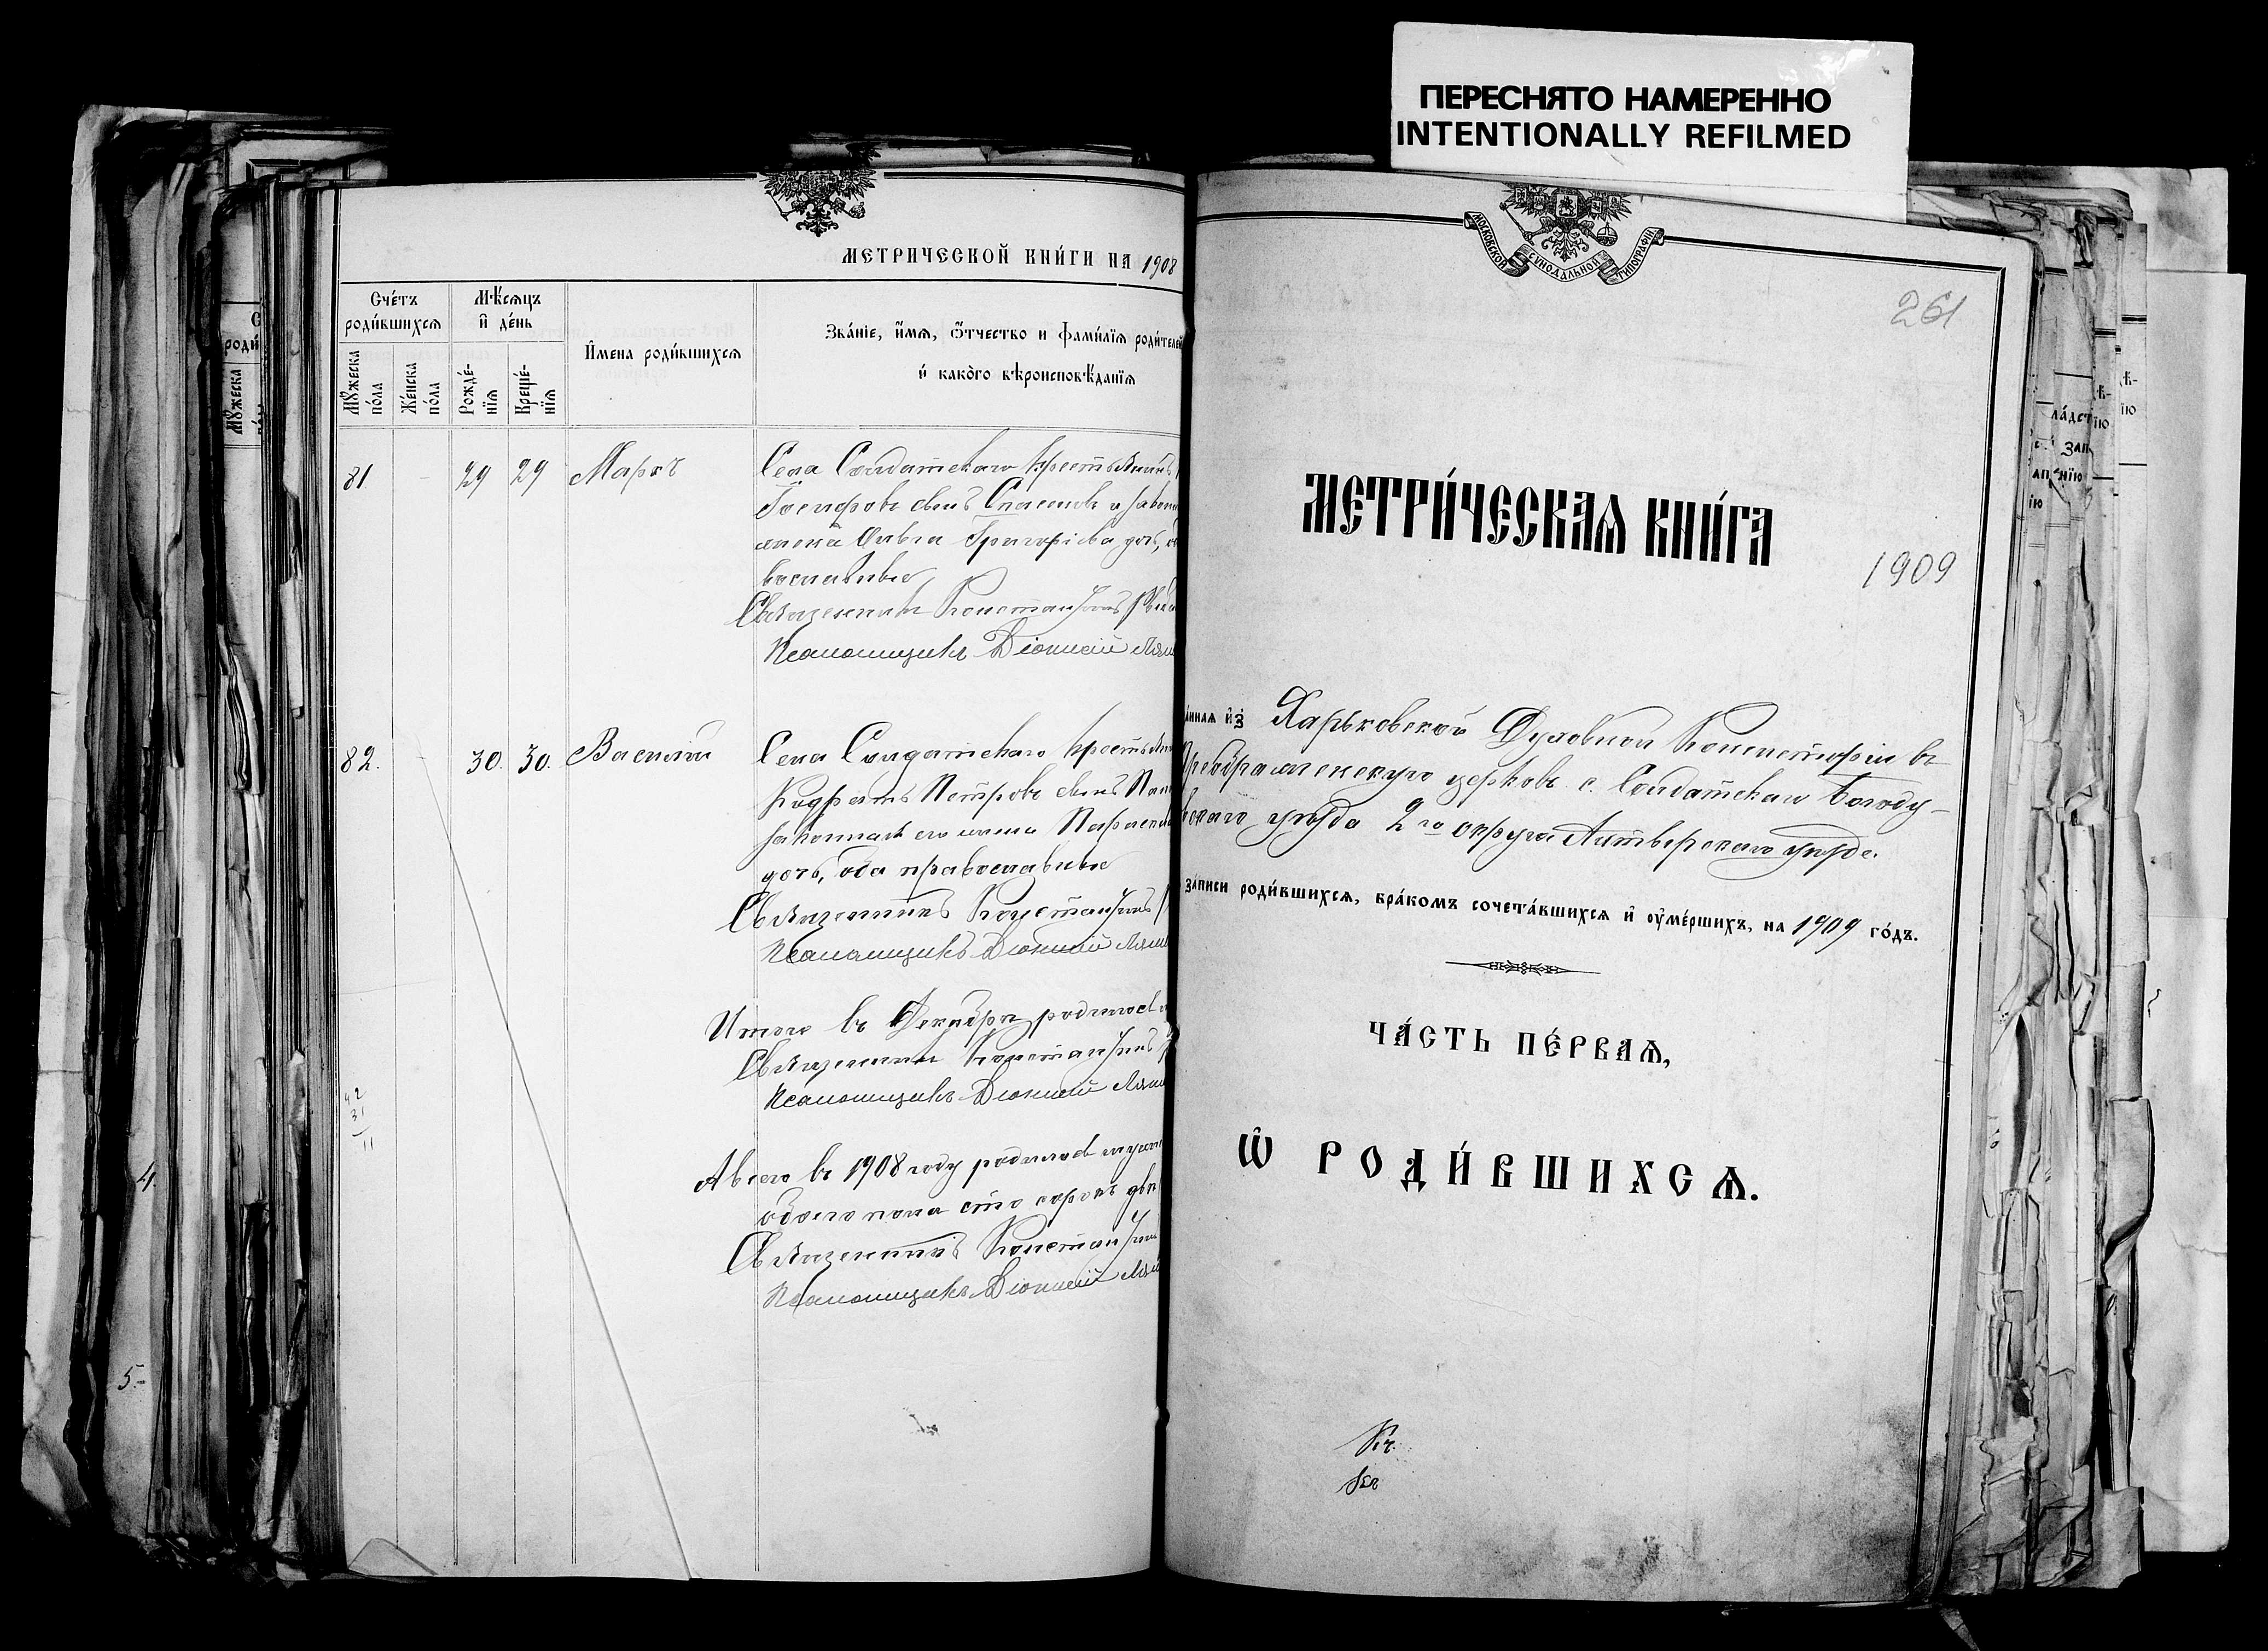 ПЕРЕСНЯТО НАМЕРЕННО
INTENTIONALLY REFILMED
МЕТРИЧЕСКОЙ КНИ́ГИ НА 1908
Сче́тъ роди́вшихся
Мѣ́сяцъ и҆ де́нь
И҆мена роди́вшихся
Зва́нїе, и҆́мя, ѻ҆́тчество и фами́лїя роди́телей
и҆ како́го вѣроисповѣ́данїя
Мꙋ́жеска по́ла
Же́нска по́ла
Рожде́-нїя
Креще́-нїя
81 - 29 29 Маркъ
Села Солдатскаго крестьянинъ
сынъ Спасеновъ и законн
Ольга Григорiева дочь,
вославные
Священникъ Константинъ
Псаломщикъ Дiонисiй
82. - 30. 30. Василiй
Села Солдатскаго крестьян
Кодратъ Петровъ сынъ
законная его жена Параскев
дочь, оба православные
Священникъ Константинъ
Псаломщикъ Дiонисiй
Итого въ Декабрѣ родилось
Священникъ Константинъ
Псаломщикъ Дiонисiй
42
31
11
А всего въ 1908 году родилось мужск
обоего пола сто сорокъ два
Священникъ Константин
Псаломщикъ Дiонисiй
4.
5.-
МОСКОВСКОЙ СИНОДАЛЬНОЙ ТИПОГРАФИИ
261
МЕТРИ́ЧЕСКАѦ КНИ́ГА
1909
а́нная и҆з̾ Харьковской Духовной Консисторiи въ
Преображенскую церковь с. Солдатскаго Богоду-
ховскаго уѣзда 2го округа Ахтырскаго уѣзда.
за́писи роди́вшихся, бра́комъ сочета́вшихся и҆ ѹ҆ме́ршихъ, на 1909 го́дъ.
ЧА́СТЬ ПЕ́РВАѦ,
Ѡ҆ РОДИ́ВШИХСѦ.